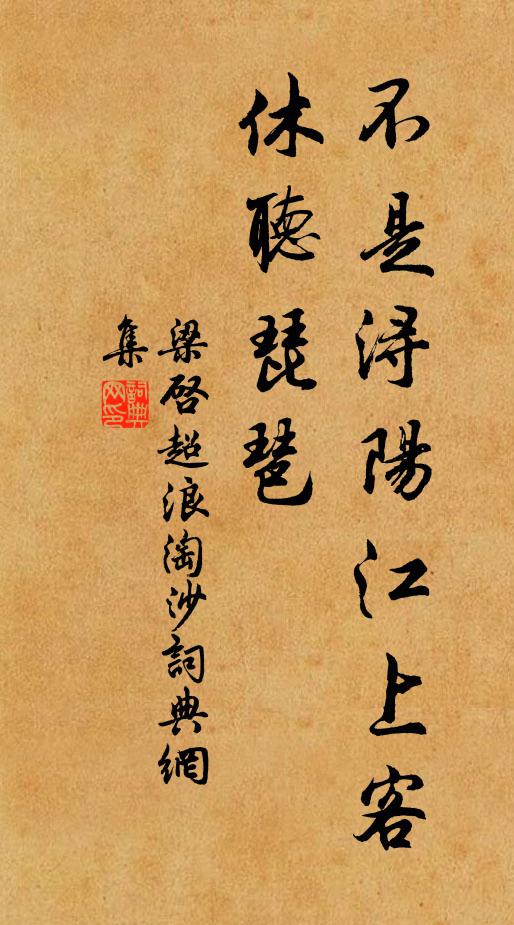 不是潯陽江上客
休聽琵琶
梁啓超浪淘沙詞典網
集
詞典
网印